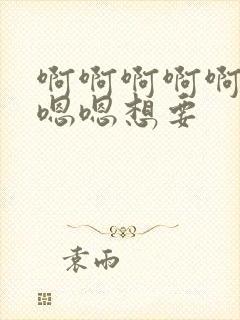 啊啊啊啊啊
嗯嗯想要
袁雨